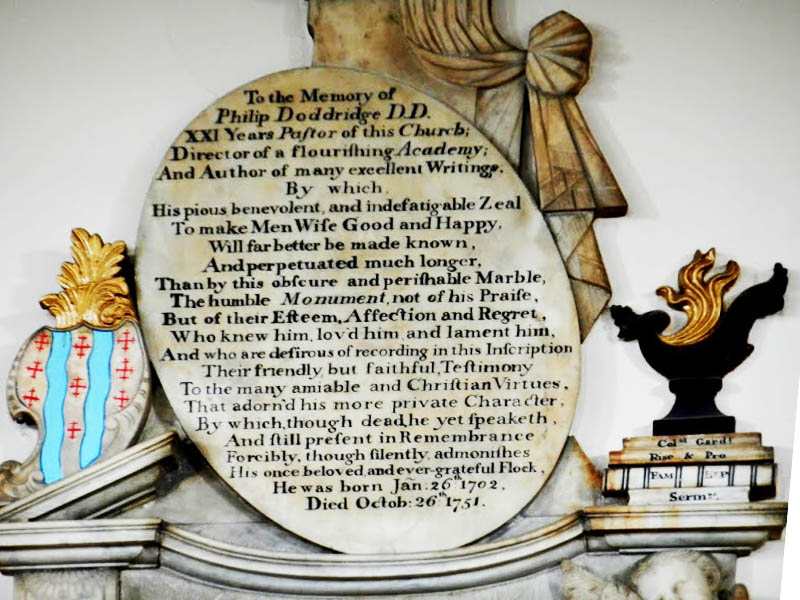 To the Memory of
Philip Doddridge D.D.
XXI Years Paſtor of this Church;
Director of a flouriſhing Academy;
And Author of many excellent Writings.
By which,
His pious benevolent, and indefatigable Zeal
To make Men Wiſe Good and Happy,
Will far better be made known,
And perpetuated much longer,
Than by this obſcure and periſhable Marble,
The humble Monument, not of his Praiſe,
But of their Eſteem, Affection and Regret,
Who knew him, lov'd him, and lament him,
And who are deſirous of recording in this Inſcription
Their friendly, but faithful, Teſtimony
To the many amiable and Chriſtian Virtues,
That adorn'd his more private Character,
By which, though dead, he yet ſpeaketh,
And ſtill preſent in Remembrance
Forcibly, though ſilently, admoniſhes
His once beloved and ever-grateful Flock,
He was born Jan: 26th 1702,
Died Octob: 26th 1751.
Colnl Gardr
Riſe & Pro
FAM EXP
Serms.